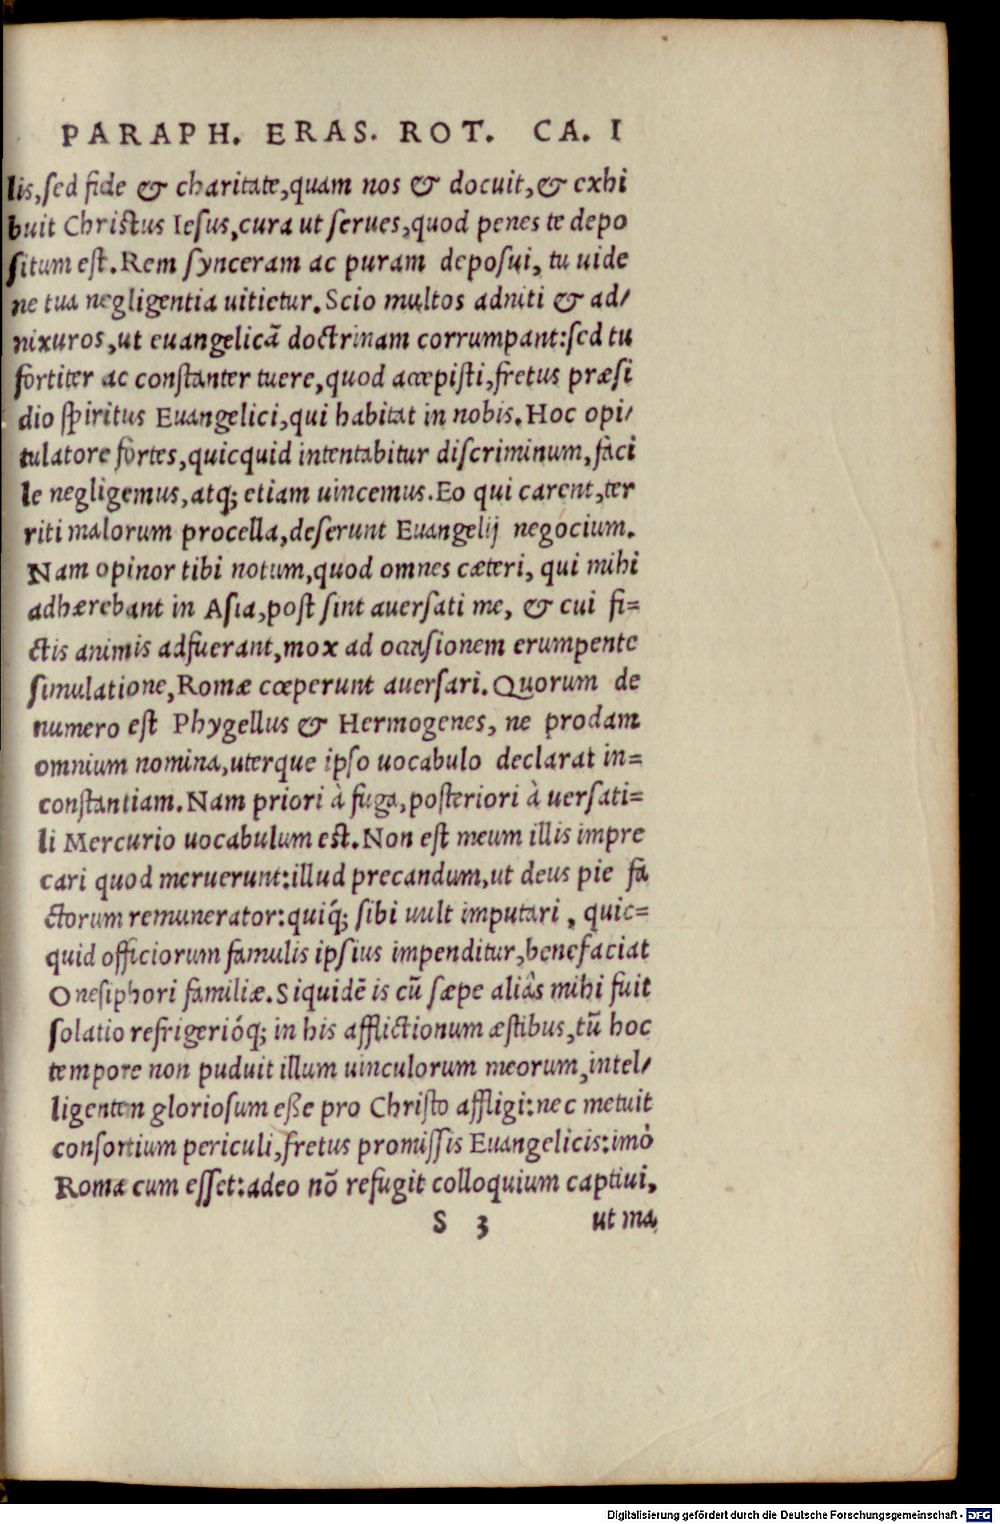 PARAPH. ERAS. ROT. CA. I
lis, ſed fide & charitate, quam nos & docuit, & exhi
buit Chriſtus Ieſus, cura ut ſerues, quod penes te depo
ſitum eſt. Rem ſynceram ac puram depoſui, tu uide
ne tua negligentia uitietur. Scio multos adniti & ad/
nixuros, ut euangelicã doctrinam corrumpant: ſed tu
fortiter ac conſtanter tuere, quod accepiſti, fretus præſi
dio ſpiritus Euangelici, qui habitat in nobis. Hoc opi/
tulatore fortes, quicquid intentabitur diſcriminum, faci
le negligemus, atq; etiam uincemus. Eo qui carent, ter
riti malorum procella, deſerunt Euangelij negocium.
Nam opinor tibi notum, quod omnes cæteri, qui mihi
adhærebant in Aſia, poſt ſint auerſati me, & cui fi=
ctis animis adfuerant, mox ad occaſionem erumpente
ſimulatione, Romæ cœperunt auerſari. Quorum de
numero eſt Phygellus & Hermogenes, ne prodam
omnium nomina, uterque ipſo uocabulo declarat in=
conſtantiam. Nam priori à fuga, poſteriori à uerſati=
li Mercurio uocabulum eſt. Non eſt meum illis impre
cari quod meruerunt: illud precandum, ut deus pie fa
ctorum remunerator: quiq́; ſibi uult imputari, quic=
quid officiorum famulis ipſius impenditur, benefaciat
Oneſiphori familiæ. Siquidẽ is cũ ſæpe aliâs mihi fuit
ſolatio refrigerióq; in his afflictionum æſtibus, tũ hoc
tempore non puduit illum uinculorum meorum, intel/
ligentem glorioſum eße pro Chriſto affligi: nec metuit
conſortium periculi, fretus promiſſis Euangelicis: imò
Romæ cum eſſet: adeo nõ refugit colloquium captiui,
S 3 ut ma
Digitalisierung gefördert durch die Deutsche Forschungsgemeinschaft - DFG